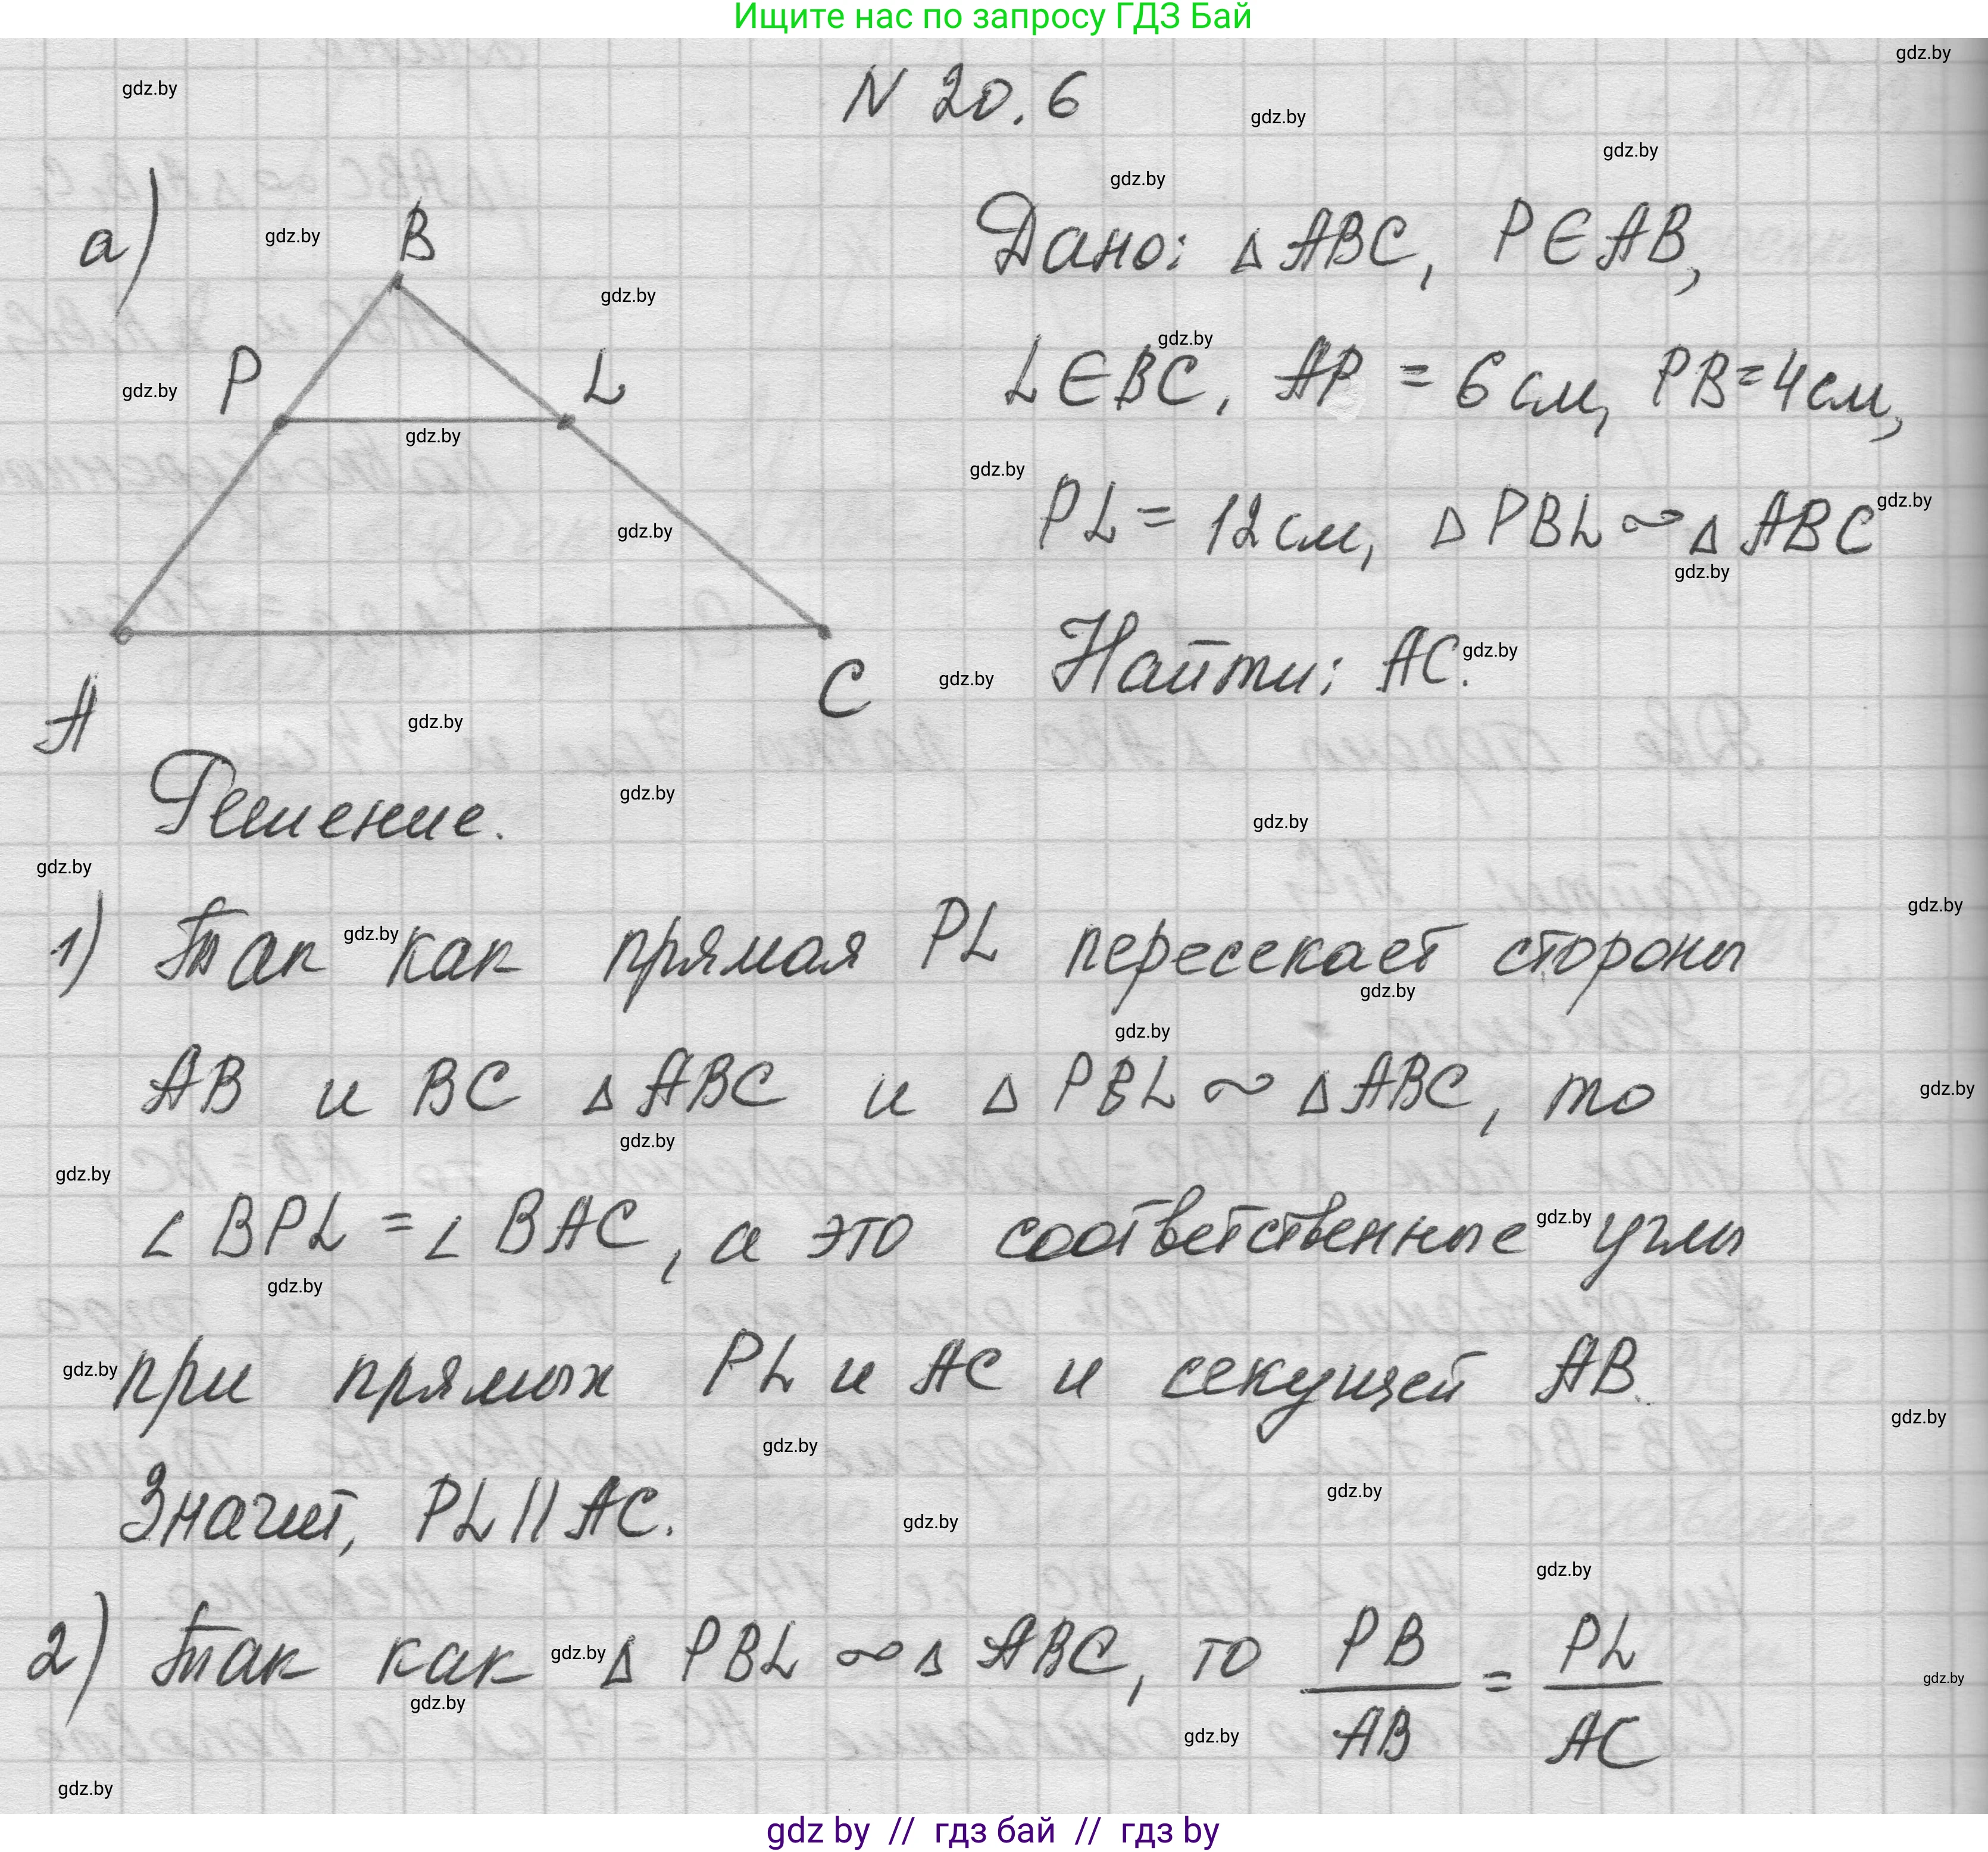 Ищите нас по запросу ГДЗ Бай
N 20.6
а)
Дано: △ ABC, P ∈ AB,
L ∈ BC, AP = 6 см, PB = 4 см,
PL = 12 см, △ PBL ∾ △ ABC
Найти: AC.
B
P
L
A
C
Решение.
1) Так как прямая PL пересекает стороны
AB и BC △ ABC и △ PBL ∾ △ ABC, то
∠ BPL = ∠ BAC, а это соответственные углы
при прямых PL и AC и секущей AB.
Значит, PL || AC.
2) Так как △ PBL ∾ △ ABC, то PB/AB = PL/AC
gdz by // гдз бай // гдз by
gdz.by